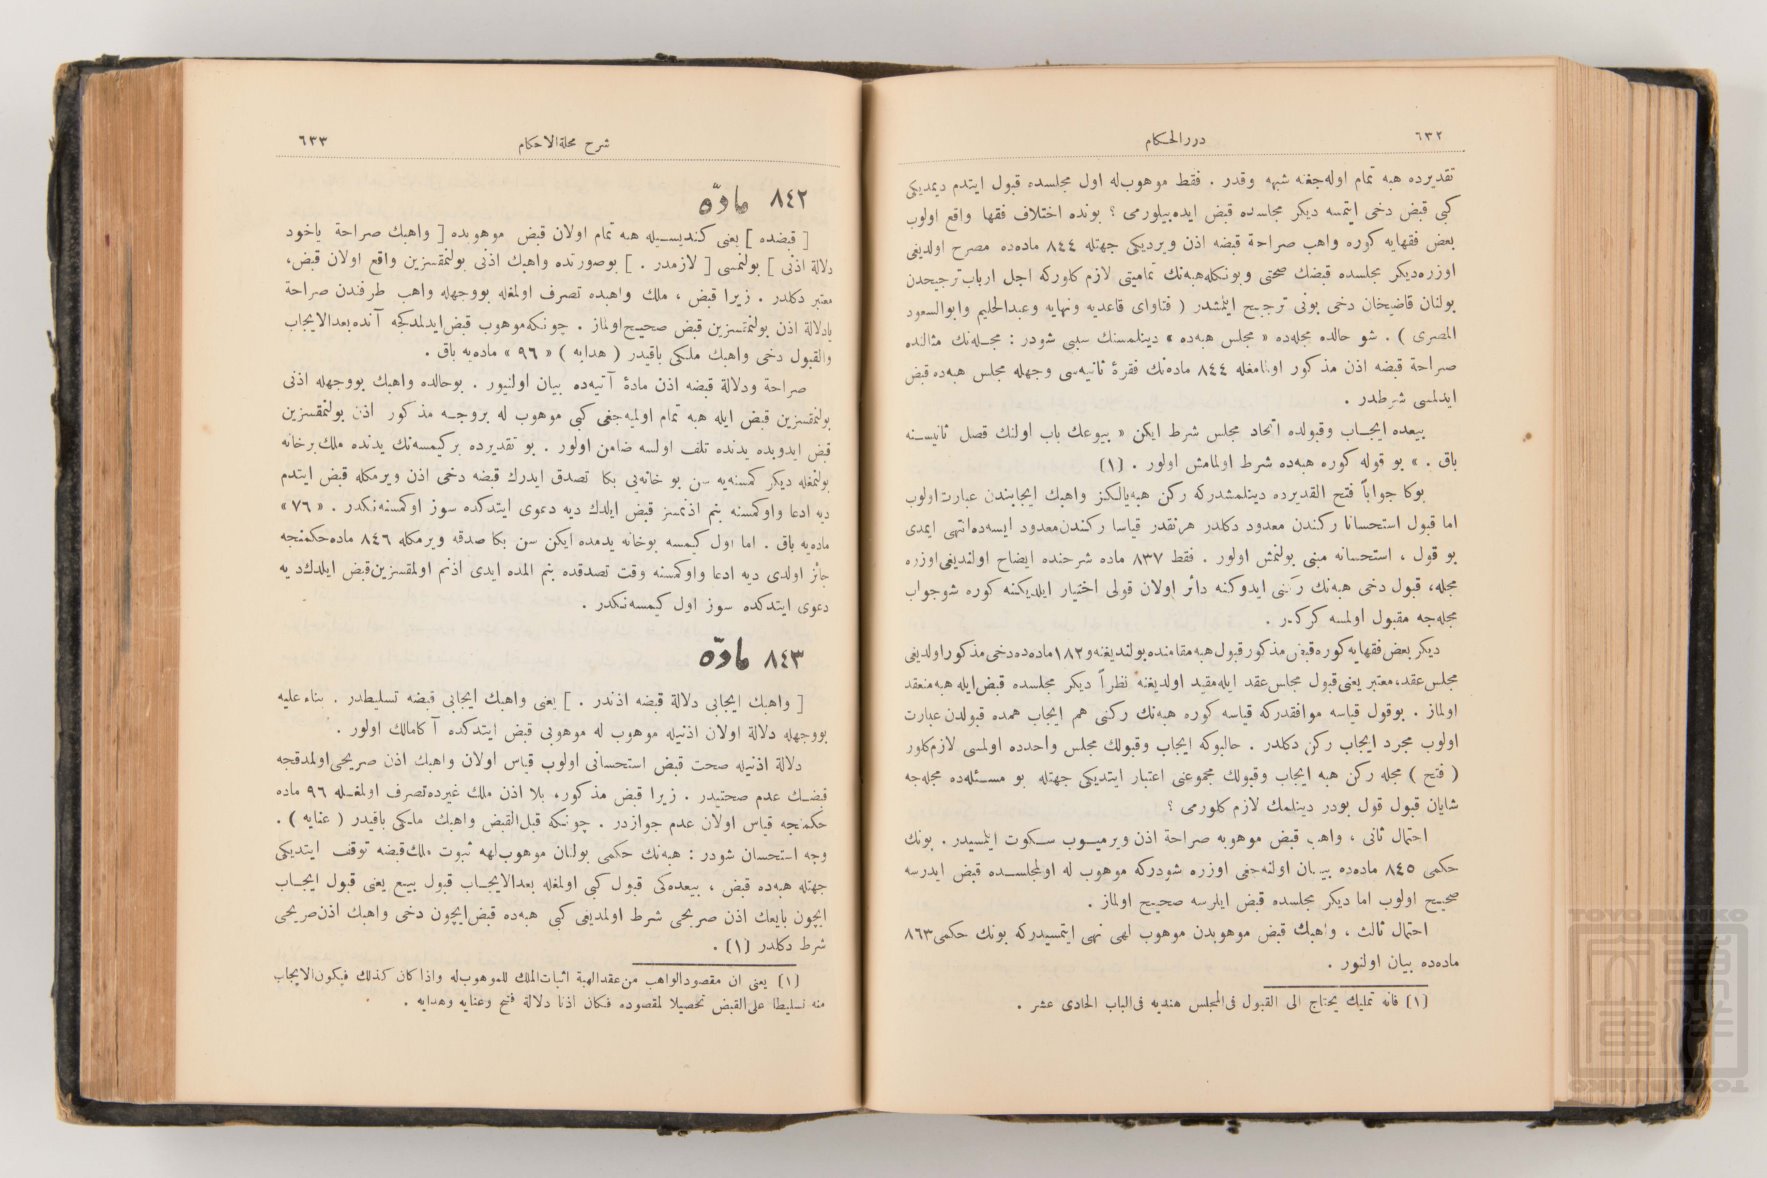 ٦٣٢
دررالحكام
تقديرده هبه تمام اوله‌جغنه شبهه وقدر . فقط موهوب‌له اول مجلسده قبول ايتدم ديمديكى
كبى قبض دخى ايتمسه ديكر مجلسده قبض ايده‌بيلورمى ؟ بونده اختلاف فقها واقع اولوب
بعض فقهايه كوره واهب صراحة قبضه اذن ويرديكى جهتله ٨٤٤ ماده‌ده مصرح اولديغى
اوزره‌ديكر مجلسده قبضك صحتى وبونكله‌هبه‌نك تماميتى لازم كلوركه اجل ارباب‌ترجيحدن
بولنان قاضيخان دخى بونى ترجيح ايلمشدر ( فتاواى قاعديه ونهايه وعبدالحليم وابوالسعود
المصرى ) . شو حالده مجله‌ده « مجلس هبه‌ده » دينلمسنك سببى شودر : مجله‌نك مثالنده
صراحة قبضه اذن مذكور اولنامغله ٨٤٤ ماده‌نك فقرۀ ثانيه‌سى وجهله مجلس هبه‌ده قبض
ايدلمسى شرطدر .
بيعده ايجاب وقبولده اتحاد مجلس شرط ايكن « بيوعك باب اولنك فصل ثانيسنه
باق . » بو قوله كوره هبه‌ده شرط اولمامش اولور . (١)
بوكا جواباً فتح القديرده دينلمشدركه ركن هبه‌يالكز واهبك ايجابندن عبارت‌اولوب
اما قبول استحسانا ركندن معدود دكلدر هرنقدر قياسا ركندن‌معدود ايسه‌ده‌انتهى ايمدى
بو قول ، استحسانه مبنى بولنمش اولور . فقط ٨٣٧ ماده شرحنده ايضاح اولنديغى‌اوزره
مجله، قبول دخى هبه‌نك ركنى ايدوكنه دائر اولان قولى اختيار ايلديكنه كوره شوجواب
مجله‌جه مقبول اولمسه كركدر .
ديكر بعض فقهايه‌كوره‌قبض مذكور قبول‌هبه‌مقامنده‌بولنديغنه‌و١٨٢ماده‌ده‌دخى‌مذكوراولديغى
مجلس‌عقد،معتبر يعنى‌قبول مجلس‌عقد ايله‌مقيد اولديغنه نظراً ديكر مجلسده قبض‌ايله هبه‌منعقد
اولماز . بوقول قياسه موافقدركه قياسه كوره هبه‌نك ركنى هم ايجاب همده قبولدن عبارت
اولوب مجرد ايجاب ركن دكلدر . حالبوكه ايجاب وقبولك مجلس واحدده اولمسى لازم‌كلور
( فتح ) مجله ركن هبه ايجاب وقبولك مجموعنى اعتبار ايتديكى جهتله بو مسئله‌ده مجله‌جه
شايان قبول قول بودر دينلمك لازم كلورمى ؟
احتمال ثانى ، واهب قبض موهوبه صراحة اذن ويرميوب سكوت ايلمسيدر . بونك
حكمى ٨٤٥ ماده‌ده بيان اولنه‌جغى اوزره شودركه موهوب له اومجلسده قبض ايدرسه
صحيح اولوب اما ديكر مجلسده قبض ايلرسه صحيح اولماز .
احتمال ثالث ، واهبك قبض موهوبدن موهوب لهى نهى ايتمسيدركه بونك حكمى٨٦٣
ماده‌ده بيان اولنور .
(١) فانه تمليك يحتاج الى القبول فى‌المجلس هنديه فى‌الباب الحادى عشر .
شرح مجلةالاحكام
٦٣٣
٨٤٢ مادّه
[ قبضده ] يعنى كنديسيله هبه تمام اولان قبض موهوبده [ واهبك صراحة ياخود
دلالة اذنى ] بولنمسى [ لازمدر . ] بوصورتده واهبك اذنى بولنمقسزين واقع اولان قبض،
معتبر دكلدر . زيرا قبض ، ملك واهبده تصرف اولمغله بووجهله واهب طرفندن صراحة
يادلالة اذن بولنمقسزين قبض صحيح‌اولماز . چونكه‌موهوب قبض‌ايدلمدكجه آنده‌بعدالايجاب
والقبول دخى واهبك ملكى باقيدر ( هدايه ) « ٩٦ » ماده‌يه باق .
صراحة ودلالة قبضه اذن مادۀ آتيه‌ده بيان اولنيور . بوحالده واهبك بووجهله اذنى
بولنمقسزين قبض ايله هبه تمام اوليه‌جغى كبى موهوب له بروجه مذكور اذن بولنمقسزين
قبض ايدوبده يدنده تلف اولسه ضامن اولور . بو تقديرده بركيمسه‌نك يدنده ملك‌برخانه
بولنمغله ديكر كمسنه‌يه سن بو خانه‌يى بكا تصدق ايدرك قبضه دخى اذن ويرمكله قبض ايتدم
ديه ادعا واوكمسنه بنم اذنمسز قبض ايلدك ديه دعوى ايتدكده سوز اوكمسنه‌نكدر . « ٧٦ »
ماده‌يه باق . اما اول كيمسه بوخانه يدمده ايكن سن بكا صدقه ويرمكله ٨٤٦ ماده‌حكمنجه
جائز اولدى ديه ادعا واوكمسنه وقت تصدقده بنم المده ايدى اذنم اولمقسزين‌قبض ايلدك‌ديه
دعوى ايتدكده سوز اول كيمسه‌نكدر .
٨٤٣ مادّه
[ واهبك ايجابى دلالة قبضه اذندر . ] يعنى واهبك ايجابى قبضه تسليطدر . بناءعليه
بووجهله دلالة اولان اذنيله موهوب له موهوبى قبض ايتدكده آكامالك اولور .
دلالة اذنيله صحت قبض استحسانى اولوب قياس اولان واهبك اذن صريحى‌اولمدقجه
قبضك عدم صحتيدر . زيرا قبض مذكور، بلا اذن ملك غيرده‌تصرف اولمغله ٩٦ ماده
حكمنجه قياس اولان عدم جوازدر . چونكه قبل‌القبض واهبك ملكى باقيدر ( عنايه ) .
وجه استحسان شودر : هبه‌نك حكمى بولنان موهوب‌لهه ثبوت ملك‌قبضه توقف ايتديكى
جهتله هبه‌ده قبض ، بيعده‌كى قبول كبى اولمغله بعدالايجاب قبول بيع يعنى قبول ايجاب
ايچون بايعك اذن صريحى شرط اولمديغى كبى هبه‌ده قبض‌ايچون دخى واهبك اذن‌صريحى
شرط دكلدر (١) .
(١) يعنى ان مقصودالواهب من‌عقدالهبة اثبات‌الملك للموهوب‌له واذاكان كذلك فيكون‌الايجاب
منه تسليطا على‌القبض تحصيلا لمقصوده فكان اذنا دلالة فتح وعنايه وهدايه .
TOYO BUNKO